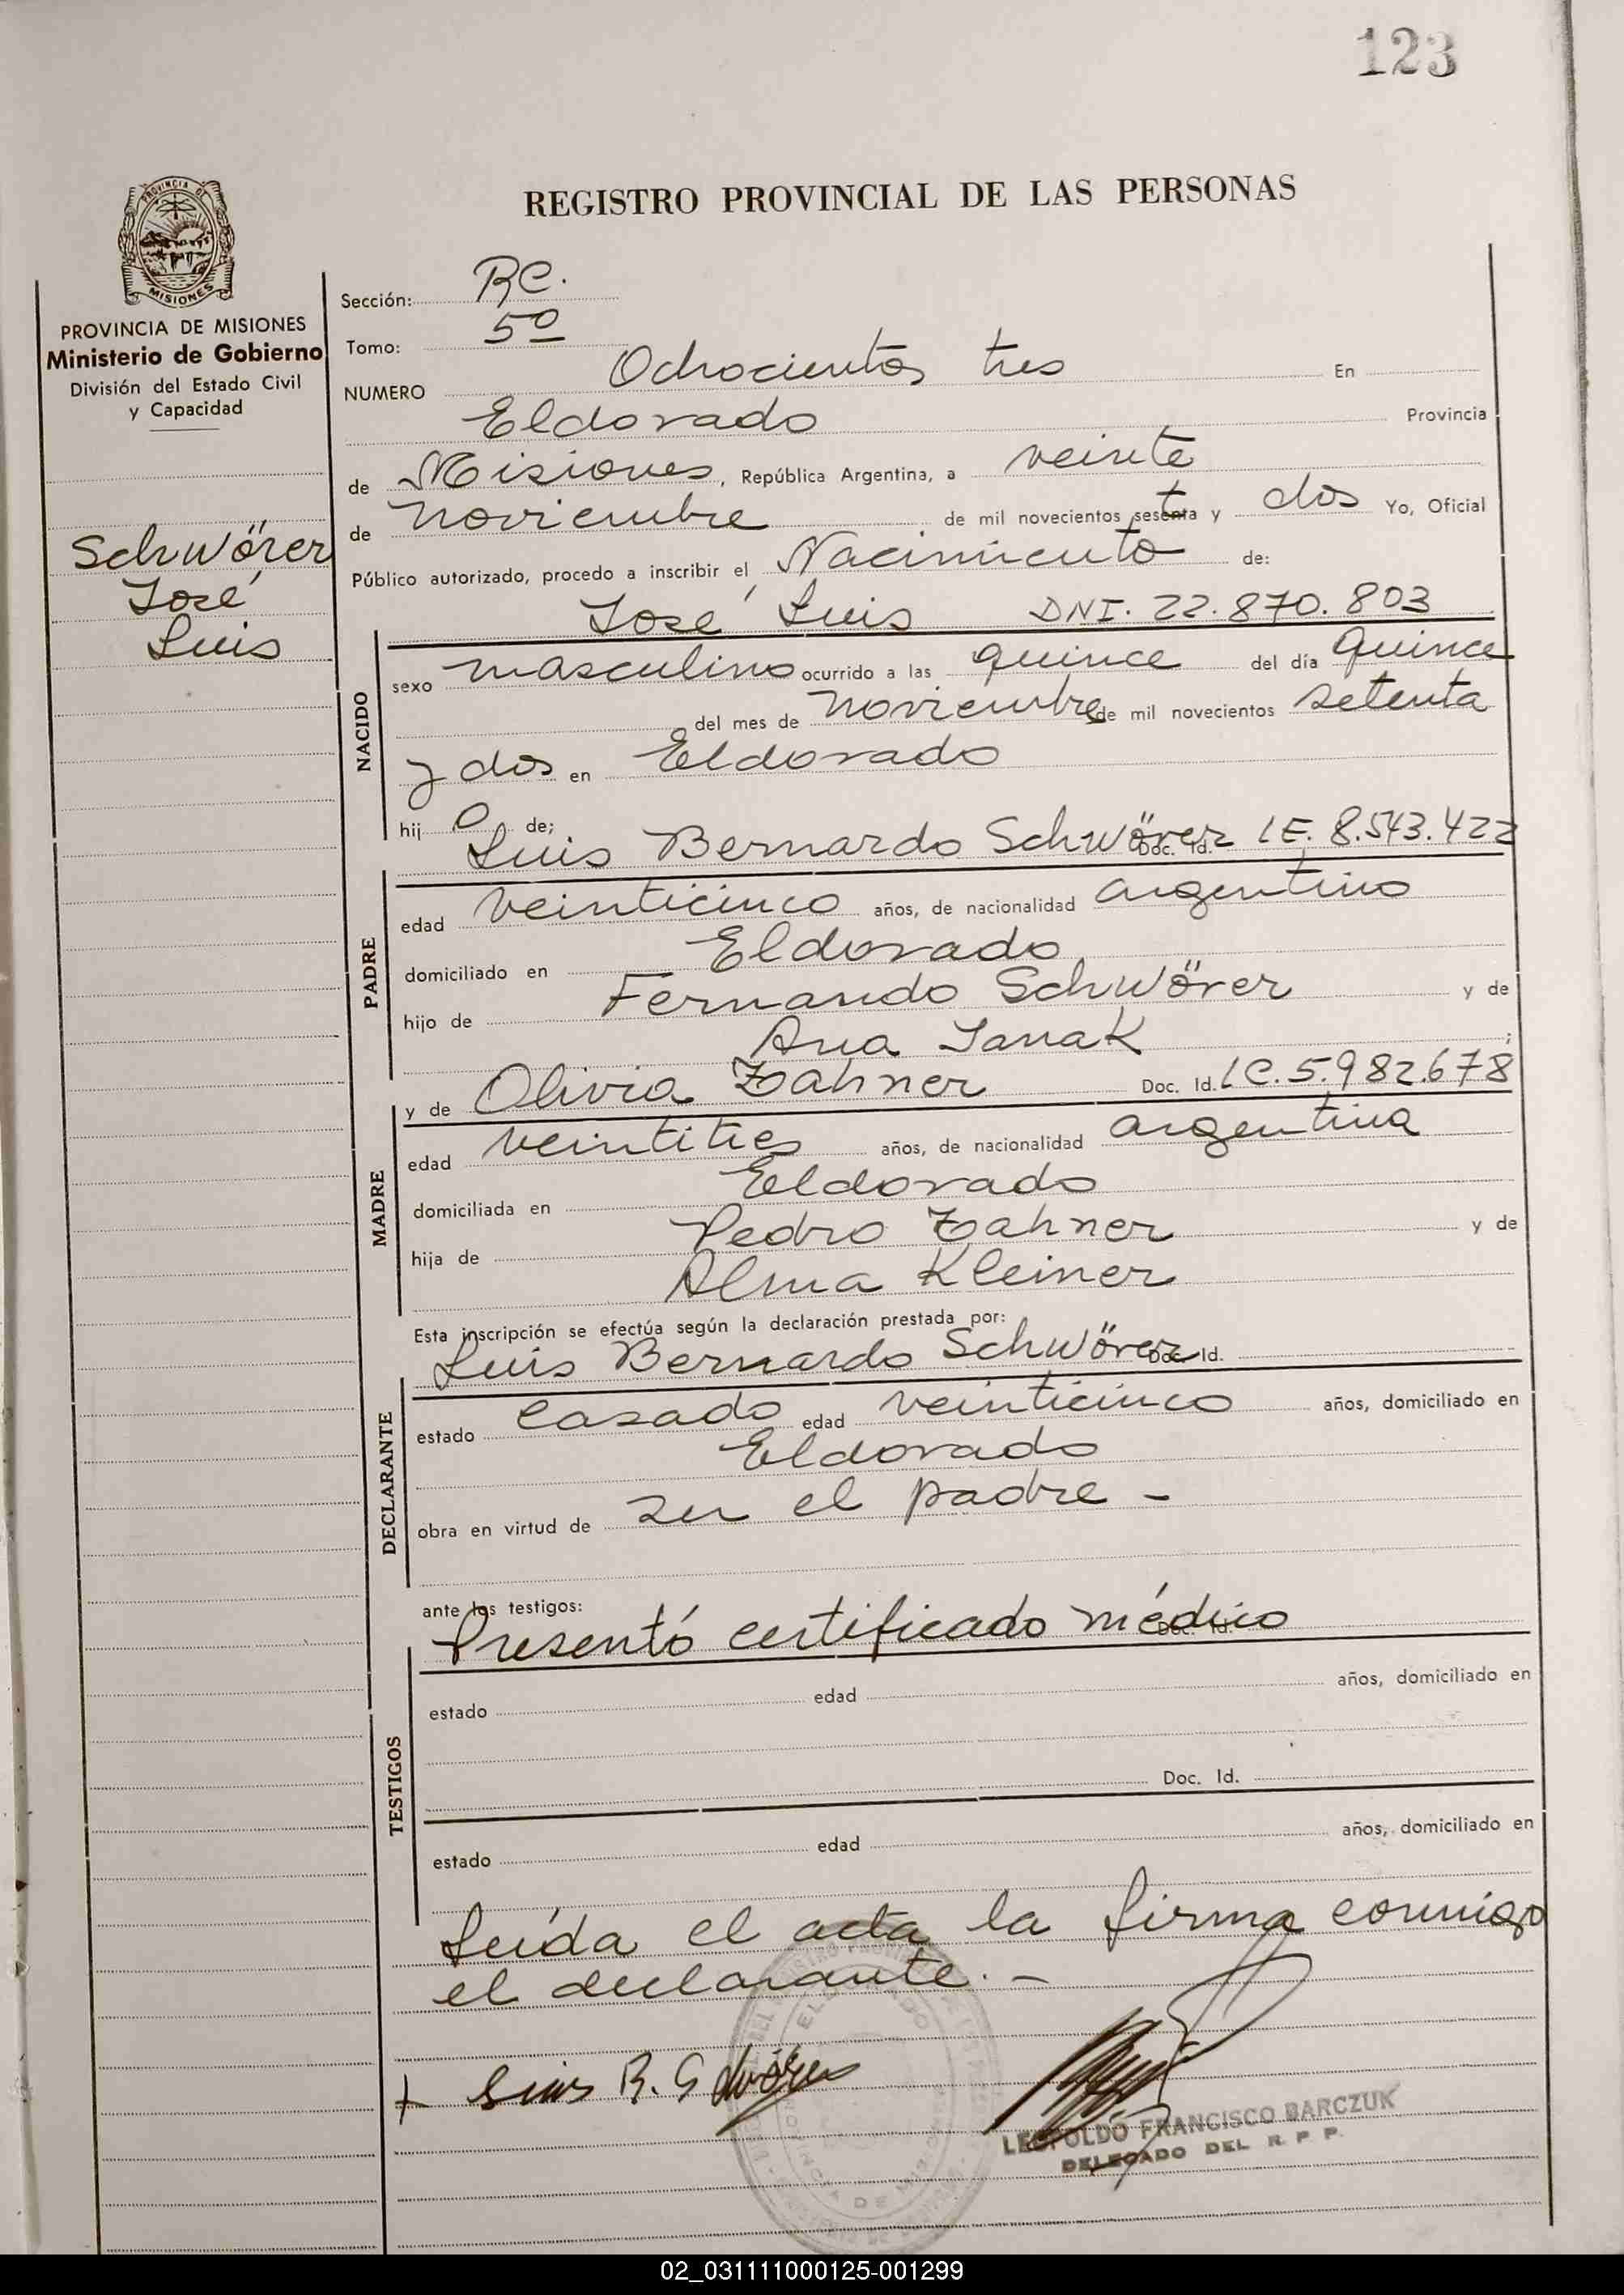 123
REGISTRO PROVINCIAL DE LAS PERSONAS
PROVINCIA DE MISIONES
Ministerio de Gobierno
División del Estado Civil
y Capacidad
Schwörer
José
Luis
Sección: RC.
Tomo: 5º
NUMERO Ochocientos tres En
Eldorado Provincia
de Misiones, República Argentina, a veinte
de noviembre de mil novecientos setenta y dos Yo, Oficial
Público autorizado, procedo a inscribir el Nacimiento de:
José Luis DNI. 22.870.803
NACIDO
sexo masculino ocurrido a las quince del día quince
del mes de noviembre de mil novecientos setenta
y dos en Eldorado
hijo de;
Luis Bernardo Schwörer Doc. Id. LE. 8.543.422
PADRE
edad veinticinco años, de nacionalidad argentino
domiciliado en Eldorado
hijo de Fernando Schwörer y de
Ana Janak ;
y de Olivia Zahner Doc. Id. LC. 5.982.678
MADRE
edad veintitres años, de nacionalidad argentina
domiciliada en Eldorado
hija de Pedro Zahner y de
Alma Kleiner
Esta inscripción se efectúa según la declaración prestada por:
Luis Bernardo Schwörer Doc. Id.
DECLARANTE
estado casado edad veinticinco años, domiciliado en
Eldorado
obra en virtud de ser el padre -
ante los testigos:
Presentó certificado médico Doc. Id.
TESTIGOS
estado edad años, domiciliado en
Doc. Id.
estado edad años, domiciliado en
Leída el acta la firma conmigo
el declarante. -
LEOPOLDO FRANCISCO BARCZUK
DELEGADO DEL R. P. P.
02_031111000125-001299